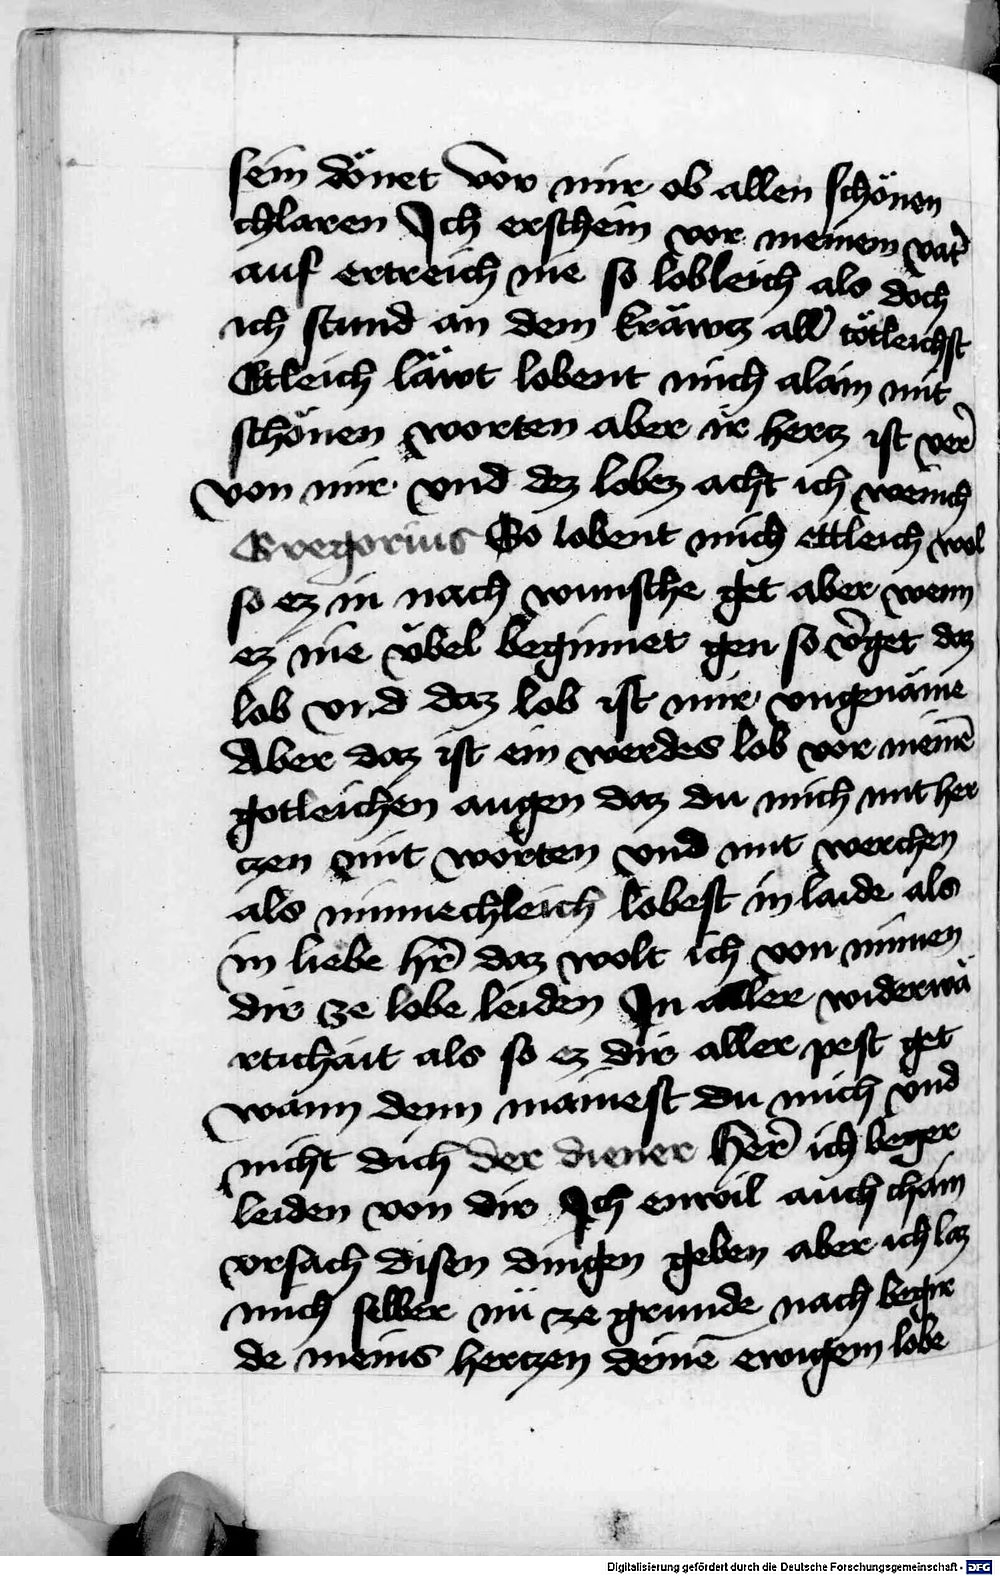 sein dönet vor mir ob allen schönen
chlaren Ich erschein vor meinem vat̄
auf ertreich nie so lobleich als doch
ich stund an dem kräwcz all̄ tötleichst
Etleich läwt lobent mich alain mit
schönen worten aber ir hercz ist ver̄
von mir und dez lobez acht ich wenich
Gregorius So lobent mich ettleich wol
so ez in nach wunsche get aber wenn
ez nie übel beginnet gen so v̄get daz
lob vnd daz lob ist mir vngenäme
Aber daz ist ein werdes lob vor meinē
gotleichen augen daz du mich mit her
czen mit worten vnd mit werchen
als minnechleich lobest in laide als
in liebe hr̄ daz wolt ich von minnen
dir ze lobe leiden In aller widerwä
rtichait als so ez dir aller pest get
wann denn mainest du mich vnd
nicht dich der diener Her̄ ich beger
leiden von dir Ich enwil auch chain
vrsach disen dingen geben aber ich laz
mich selber nü ze grunde nach begir
de meins herczen deinē ewigem lobe
Digitalisierung gefördert durch die Deutsche Forschungsgemeinschaft - DFG